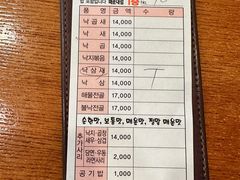 품 명 금 액 수 량
낙 곱 새 14,000
낙 새 14,000
낙 곱 14,000
낙지볶음 14,000
낙 삼 새 14,000
낙 삼 14,000
해물전골 17,000
불낙전골 17,000
순한맛, 보통맛, 매운맛, 짱맛 매운맛
추가사리
낙지·곱창 새우·삼겹 14,000
당면·우동 라면사리 2,000
공 기 밥 1,000